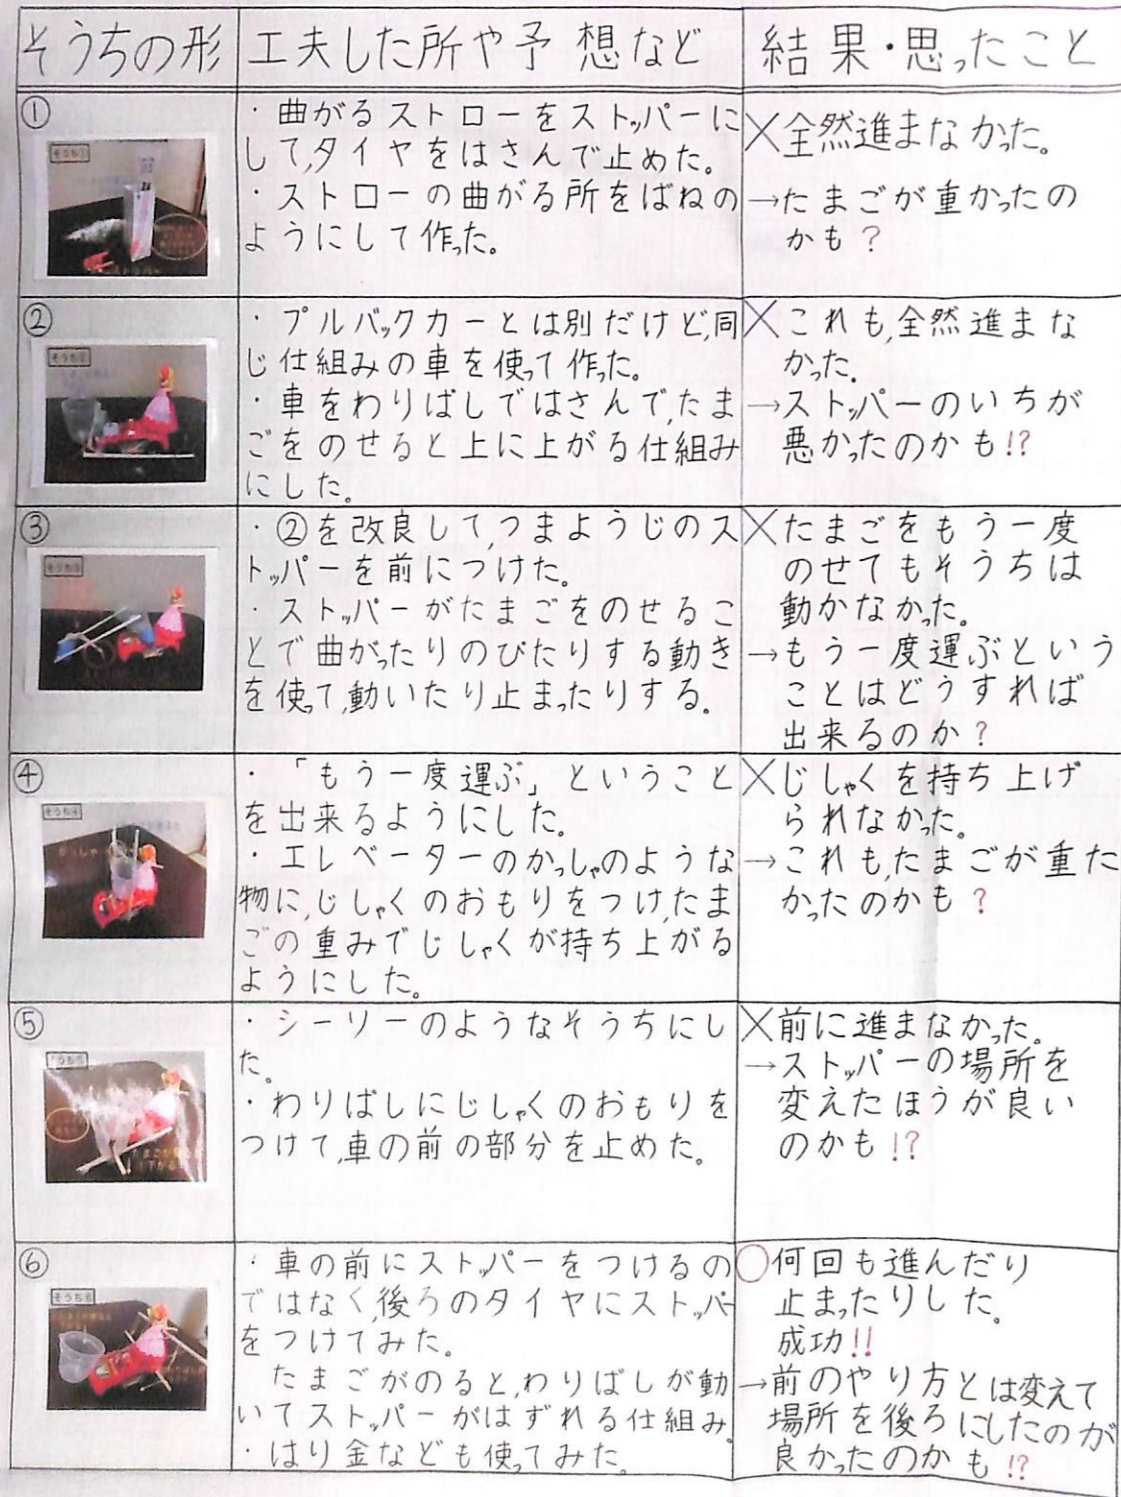 そうちの形
工夫した所や予想など
結果・思ったこと
①
そうち①
・曲がるストローをストッパーに
して、タイヤをはさんで止めた。
・ストローの曲がる所をばねの
ようにして作った。
×全然進まなかった。
→たまごが重かったの
かも?
②
そうち②
・プルバックカーとは別だけど、同
じ仕組みの車を使って作った。
・車をわりばしではさんで、たま
ごをのせると上に上がる仕組み
にした。
×これも、全然進まな
かった。
→ストッパーのいちが
悪かったのかも!?
③
そうち③
・②を改良して、つまようじのス
トッパーを前につけた。
・ストッパーがたまごをのせるこ
とで曲がったりのびたりする動き
を使って、動いたり止まったりする。
×たまごをもう一度
のせてもそうちは
動かなかった。
→もう一度運ぶという
ことはどうすれば
出来るのか?
④
そうち④
・「もう一度運ぶ」ということ
を出来るようにした。
・エレベーターのかっしゃのような
物に、じしゃくのおもりをつけ、たま
ごの重みでじしゃくが持ち上がる
ようにした。
×じしゃくを持ち上げ
られなかった。
→これも、たまごが重た
かったのかも?
⑤
・シーソーのようなそうちにし
た。
・わりばしにじしゃくのおもりを
つけて、車の前の部分を止めた。
×前に進まなかった。
→ストッパーの場所を
変えたほうが良い
のかも!?
⑥
そうち⑥
・車の前にストッパーをつけるの
ではなく、後ろのタイヤにストッパー
をつけてみた。
たまごがのると、わりばしが動
いてストッパーがはずれる仕組み。
・はり金なども使ってみた。
○何回も進んだり
止まったりした。
成功!!
→前のやり方とは変えて
場所を後ろにしたのが
良かったのかも!?